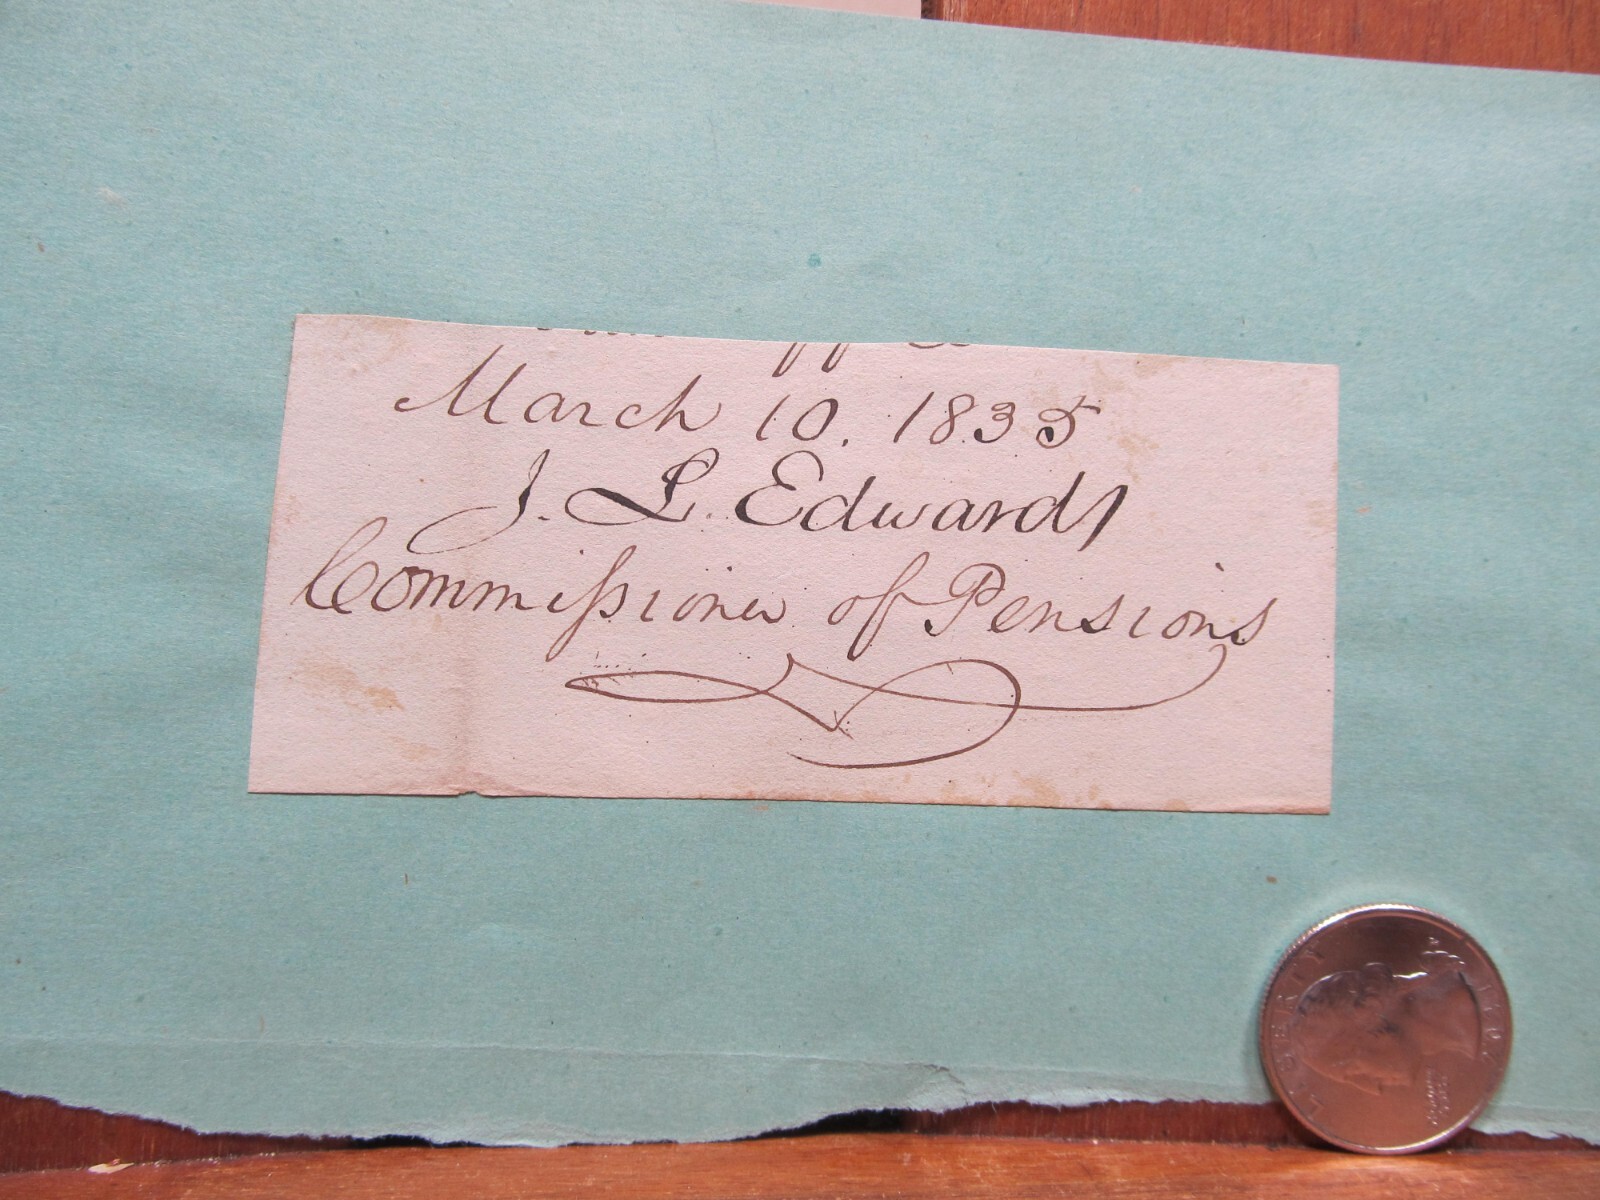 March 10. 1835
J. L. Edwards
Commiſsioner of Pensions
LIBERTY